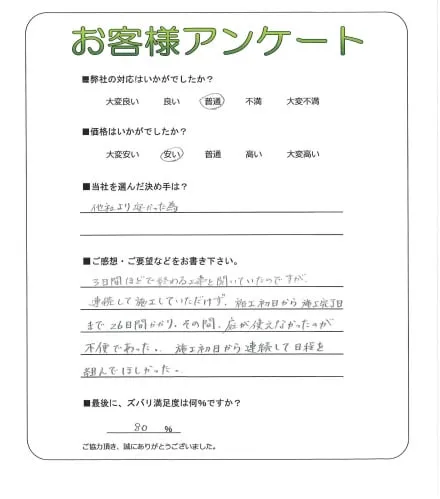 お客様アンケート
■弊社の対応はいかがでしたか？
大変良い 良い 普通 不満 大変不満
■価格はいかがでしたか？
大変安い 安い 普通 高い 大変高い
■当社を選んだ決め手は？
他社より安かった為
■ご感想・ご要望などをお書き下さい。
3日間ほどで終わる工事と聞いていたのですが、
連続して施工していただけず、施工初日から施工完了日
まで26日間かかり、その間、庭が使えなかったのが
不便であった。施工初日から連続して日程を
組んでほしかった。
■最後に、ズバリ満足度は何％ですか？
80 ％
ご協力頂き、誠にありがとうございました。